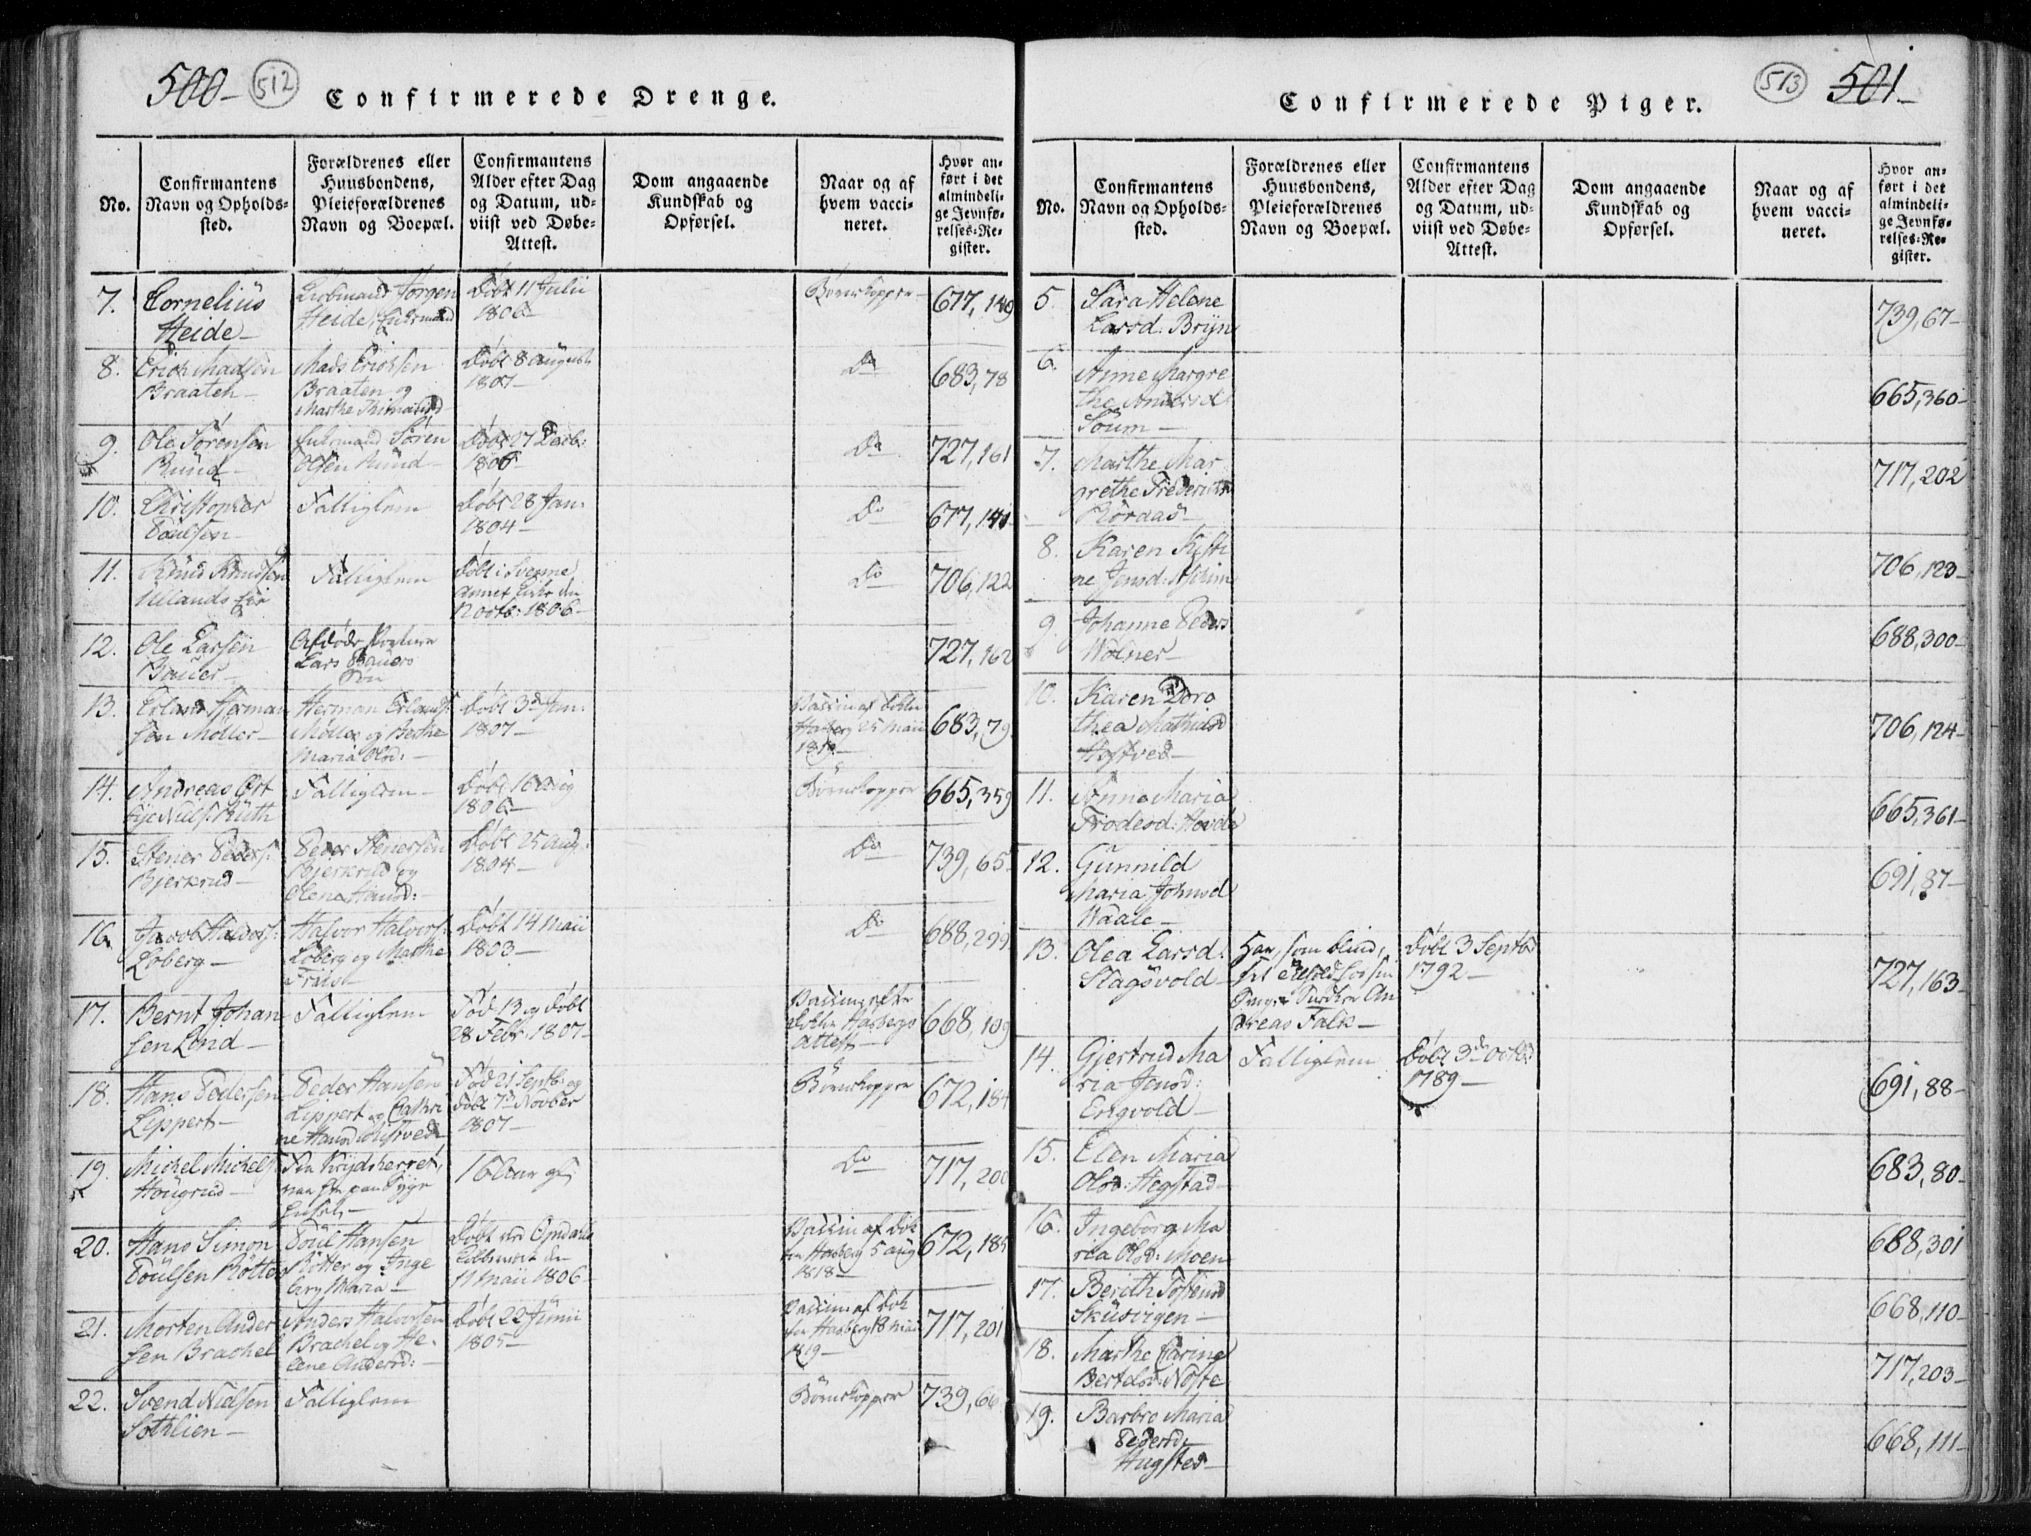 500- 512
Confirmerede Drenge.
No.
Confirmantens
Navn og Opholds-
sted.
Forældrenes eller
Huusbondens,
Pleieforældrenes
Navn og Boepæl.
Confirmantens
Alder efter Dag
og Datum, ud-
viist ved Døbe-
Attest.
Dom angaaende
Kundskab og
Opførsel.
Naar og af
hvem vacci-
neret.
Hvor an-
ført i det
almindeli-
ge Jevnfø-
relses-Re-
gister.
7. Cornelius
Heide-
Jørgen
Heide
Døbt 11 Julii
1806-
Børnekopper- 677,149
8. Erich Madsen
Braaten-
Mads Erichsen
Braaten og
Marthe
Døbt 8 August
1807-
Do 683,78
9. Ole Sörensen
Rund-
Sören
Olsen Rund-
Døbt 27 Decb:
1806-
Do 727,161
10. Christopher
Poulsen-
Falliglem
Døbt 28 Jan:
1804-
Do 677,
11. Knud Knudsen
Ullands
Falliglem
Døbt i Svenne
annex Kirke den
1806-
Do 706,122
12. Ole Larsen
Bauer-
Afdøde
Lars Bauers
Søn
727,162
13. Erland Herman
sen Møller-
Herman Erlands:
Møller og Berthe
Maria Olsd:-
Døbt 3d Jan:
1807-
Vaccin af Dokter
Harberg 25 Maii
683,79
14. Andreas
Niels: Ruth
Falliglem-
Døbt 10 Aug
1806-
Børnekopper 665,359
15. Stener Peders:
Bjerkrud-
Peder Stenersen
Bjerkrud og
Olena Hansd:
Døbt 25 Aug:
1804-
Do 739,65
16. Jacob Halvors:
Loberg-
Halvor Halvors:
Loberg og Marthe
Friis
Døbt 14 Maii
1803-
Do 688,299
17. Bernt Johan
sen Lund-
Falliglem
Fød 13 og døbt
28 Febr: 1807-
Vaccin efter
Dokter Harbergs
Attest- 668,109
18. Hans Pedersen
Lippert-
Peder Hansen
Lippert og Cathri
ne Hansd
Fød 21 Septb: og
døbt 7d Novber
1807-
Børnekopper 672,184
19. Michel Michels:
Hougrud-
16 Aar
Do 717,200
20. Hans Simon
Poulsen Rotter
Poul Hansen
Rotter og Inge
borg Maria-
Døbt ved
den
11 Maii 1806-
Vaccin af Dok
ter Harberg 5 Aug
1818- 672,185
21. Morten Ander
sen Brachel
Anders Halvorsen
Brachel og He-
lene Andersd:-
Døbt 22 Junii
1805-
Vaccin af Dok
ter Harberg 18 Maii
1819- 717,201
22. Svend Nielsen
Sothlien-
Falliglem
Børnekopper 739,66
513 501-
Confirmerede Piger.
No.
Confirmantens
Navn og Opholds-
sted.
Forældrenes eller
Huusbondens,
Pleieforældrenes
Navn og Boepæl.
Confirmantens
Alder efter Dag
og Datum, ud-
viist ved Døbe-
Attest.
Dom angaaende
Kundskab og
Opførsel.
Naar og af
hvem vacci-
neret.
Hvor an-
ført i det
almindeli-
ge Jevnfø-
relses-Re-
gister.
5. Sara Helene
Larsd: Bryn 739,67-
6. Anne Margre
the Andersd
Soum- 665,360-
7. Marthe Mar
grethe Frederichsd
Röraas- 717,202
8. Karen Kisti
ne Jensd: 706,123-
9. Johanne Peders
Wolner- 688,300-
10. Karen Doro
thea Mathiasd
Hostved- 706,124-
11. Anna Maria
Frodesd: Hovde 665,361-
12. Gunnild
Maria Johnsd
Waale- 691,87-
13. Olea Larsd:
Slagsvold-
Har, som blind,
An
dreas Falk-
Døbt 3 Septb
1792- 727,163-
14. Gjertrud Ma
ria Jensd:
Engvold-
Falliglem
Døbt 3de Octob
1789- 691,88-
15. Elen Maria
Olsd: Hegstad- 683,80-
16. Ingeborg Ma
ria Olsd: Moen 688,301
17. Berith Tostensd
Skutvigen- 668,110-
18. Marthe Carine
Bertelsd: Noste 717,203-
19. Barbro Maria
Pedersd-
Hugsted- 668,111-